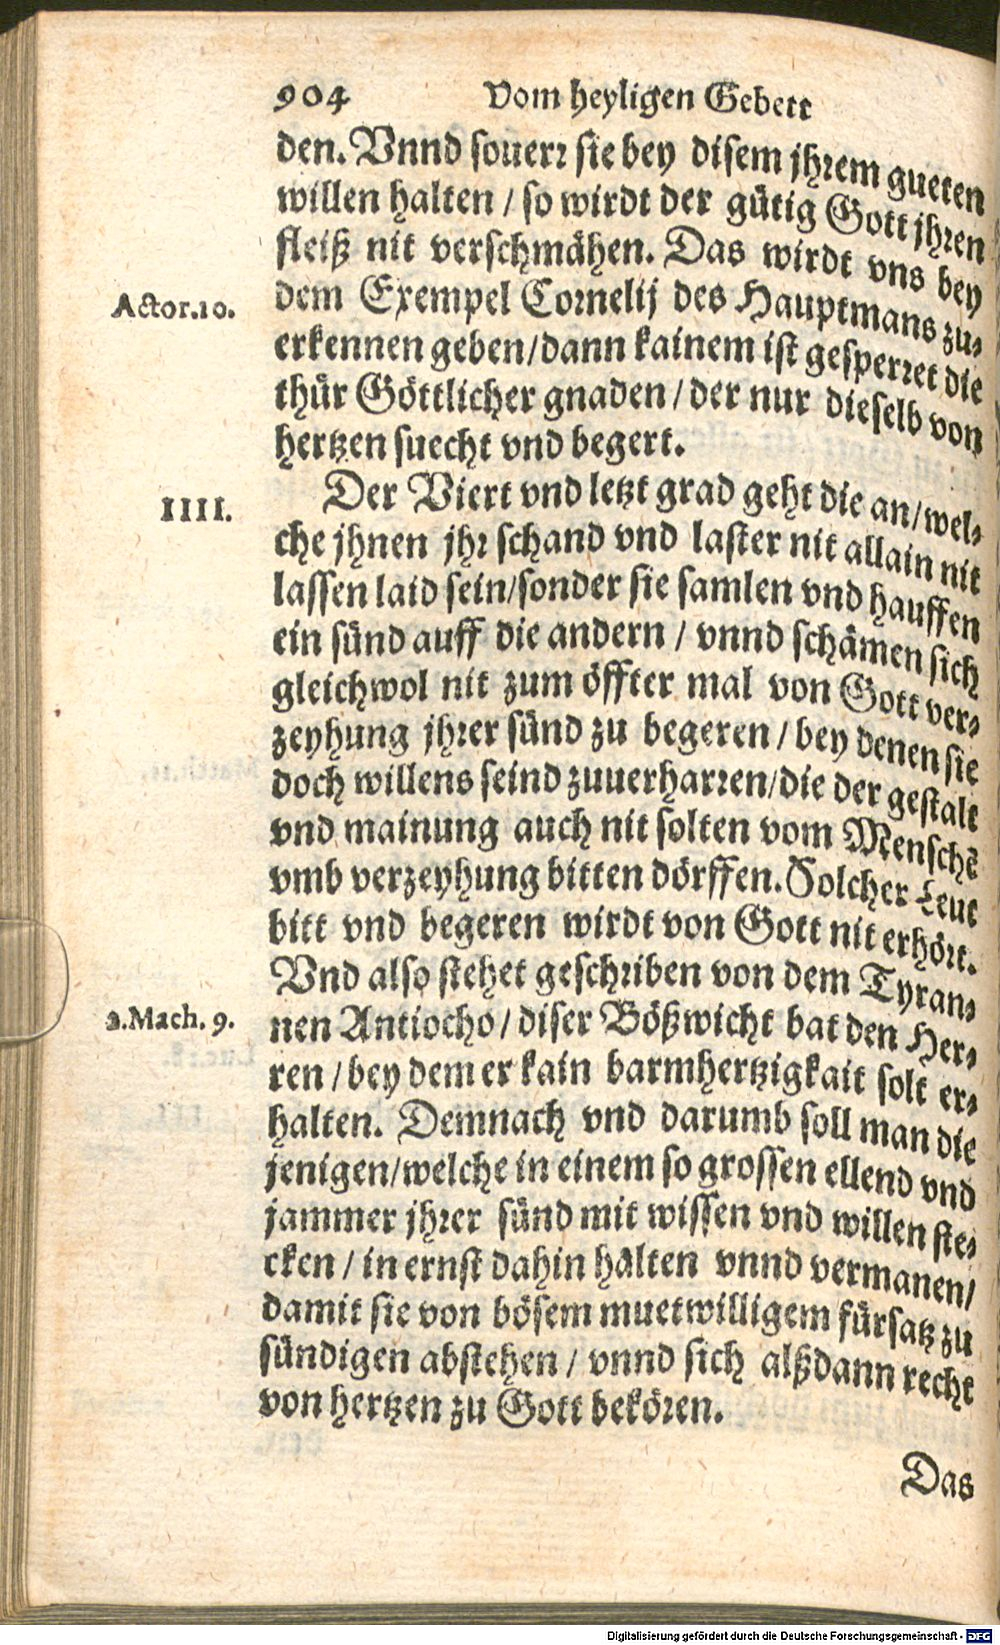 904 Vom heyligen Gebett
den. Vnnd souerr sie bey disem jhrem gueten
willen halten / so wirdt der gütig Gott jhren
fleiß nit verschmähen. Das wirdt vns bey
Actor.10. dem Exempel Cornelij des Hauptmans zu-
erkennen geben/dann kainem ist gesperret die
thür Göttlicher gnaden / der nur dieselb von
hertzen suecht vnd begert.
IIII. Der Viert vnd letzt grad geht die an/wel-
che jhnen jhr schand vnd laster nit allain nit
lassen laid sein/sonder sie samlen vnd hauffen
ein sünd auff die andern / vnnd schämen sich
gleichwol nit zum öffter mal von Gott ver-
zeyhung jhrer sünd zu begeren / bey denen sie
doch willens seind zuuerharren/die der gestalt
vnd mainung auch nit solten vom Menschẽ
vmb verzeyhung bitten dörffen. Solcher Leut
bitt vnd begeren wirdt von Gott nit erhört.
Vnd also stehet geschriben von dem Tyran-
2.Mach. 9. nen Antiocho / diser Bößwicht bat den Her-
ren / bey dem er kain barmhertzigkait solt er-
halten. Demnach vnd darumb soll man die
jenigen/welche in einem so grossen ellend vnd
jammer jhrer sünd mit wissen vnd willen ste-
cken / in ernst dahin halten vnnd vermanen/
damit sie von bösem muetwilligem fürsatz zu
sündigen abstehen / vnnd sich alßdann recht
von hertzen zu Gott bekören.
Das
Digitalisierung gefördert durch die Deutsche Forschungsgemeinschaft - DFG